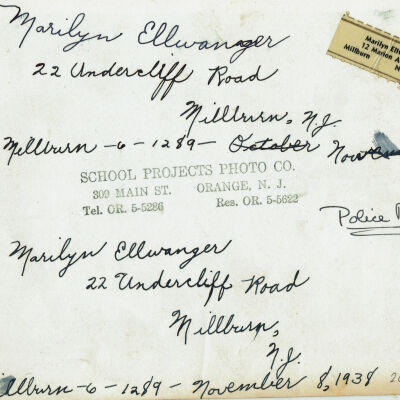 Marilyn Ellwanger
22 Undercliff Road
Millburn, N.J.
Millburn - 6 - 1289 - October
SCHOOL PROJECTS PHOTO CO.
309 MAIN ST. ORANGE, N. J.
Tel. OR. 5-5286 Res. OR. 5-5622
Marilyn Ell
12 Marion A
Millburn N
Police
Marilyn Ellwanger
22 Undercliff Road
Millburn,
N.J.
Millburn - 6 - 1289 - November 8, 1938